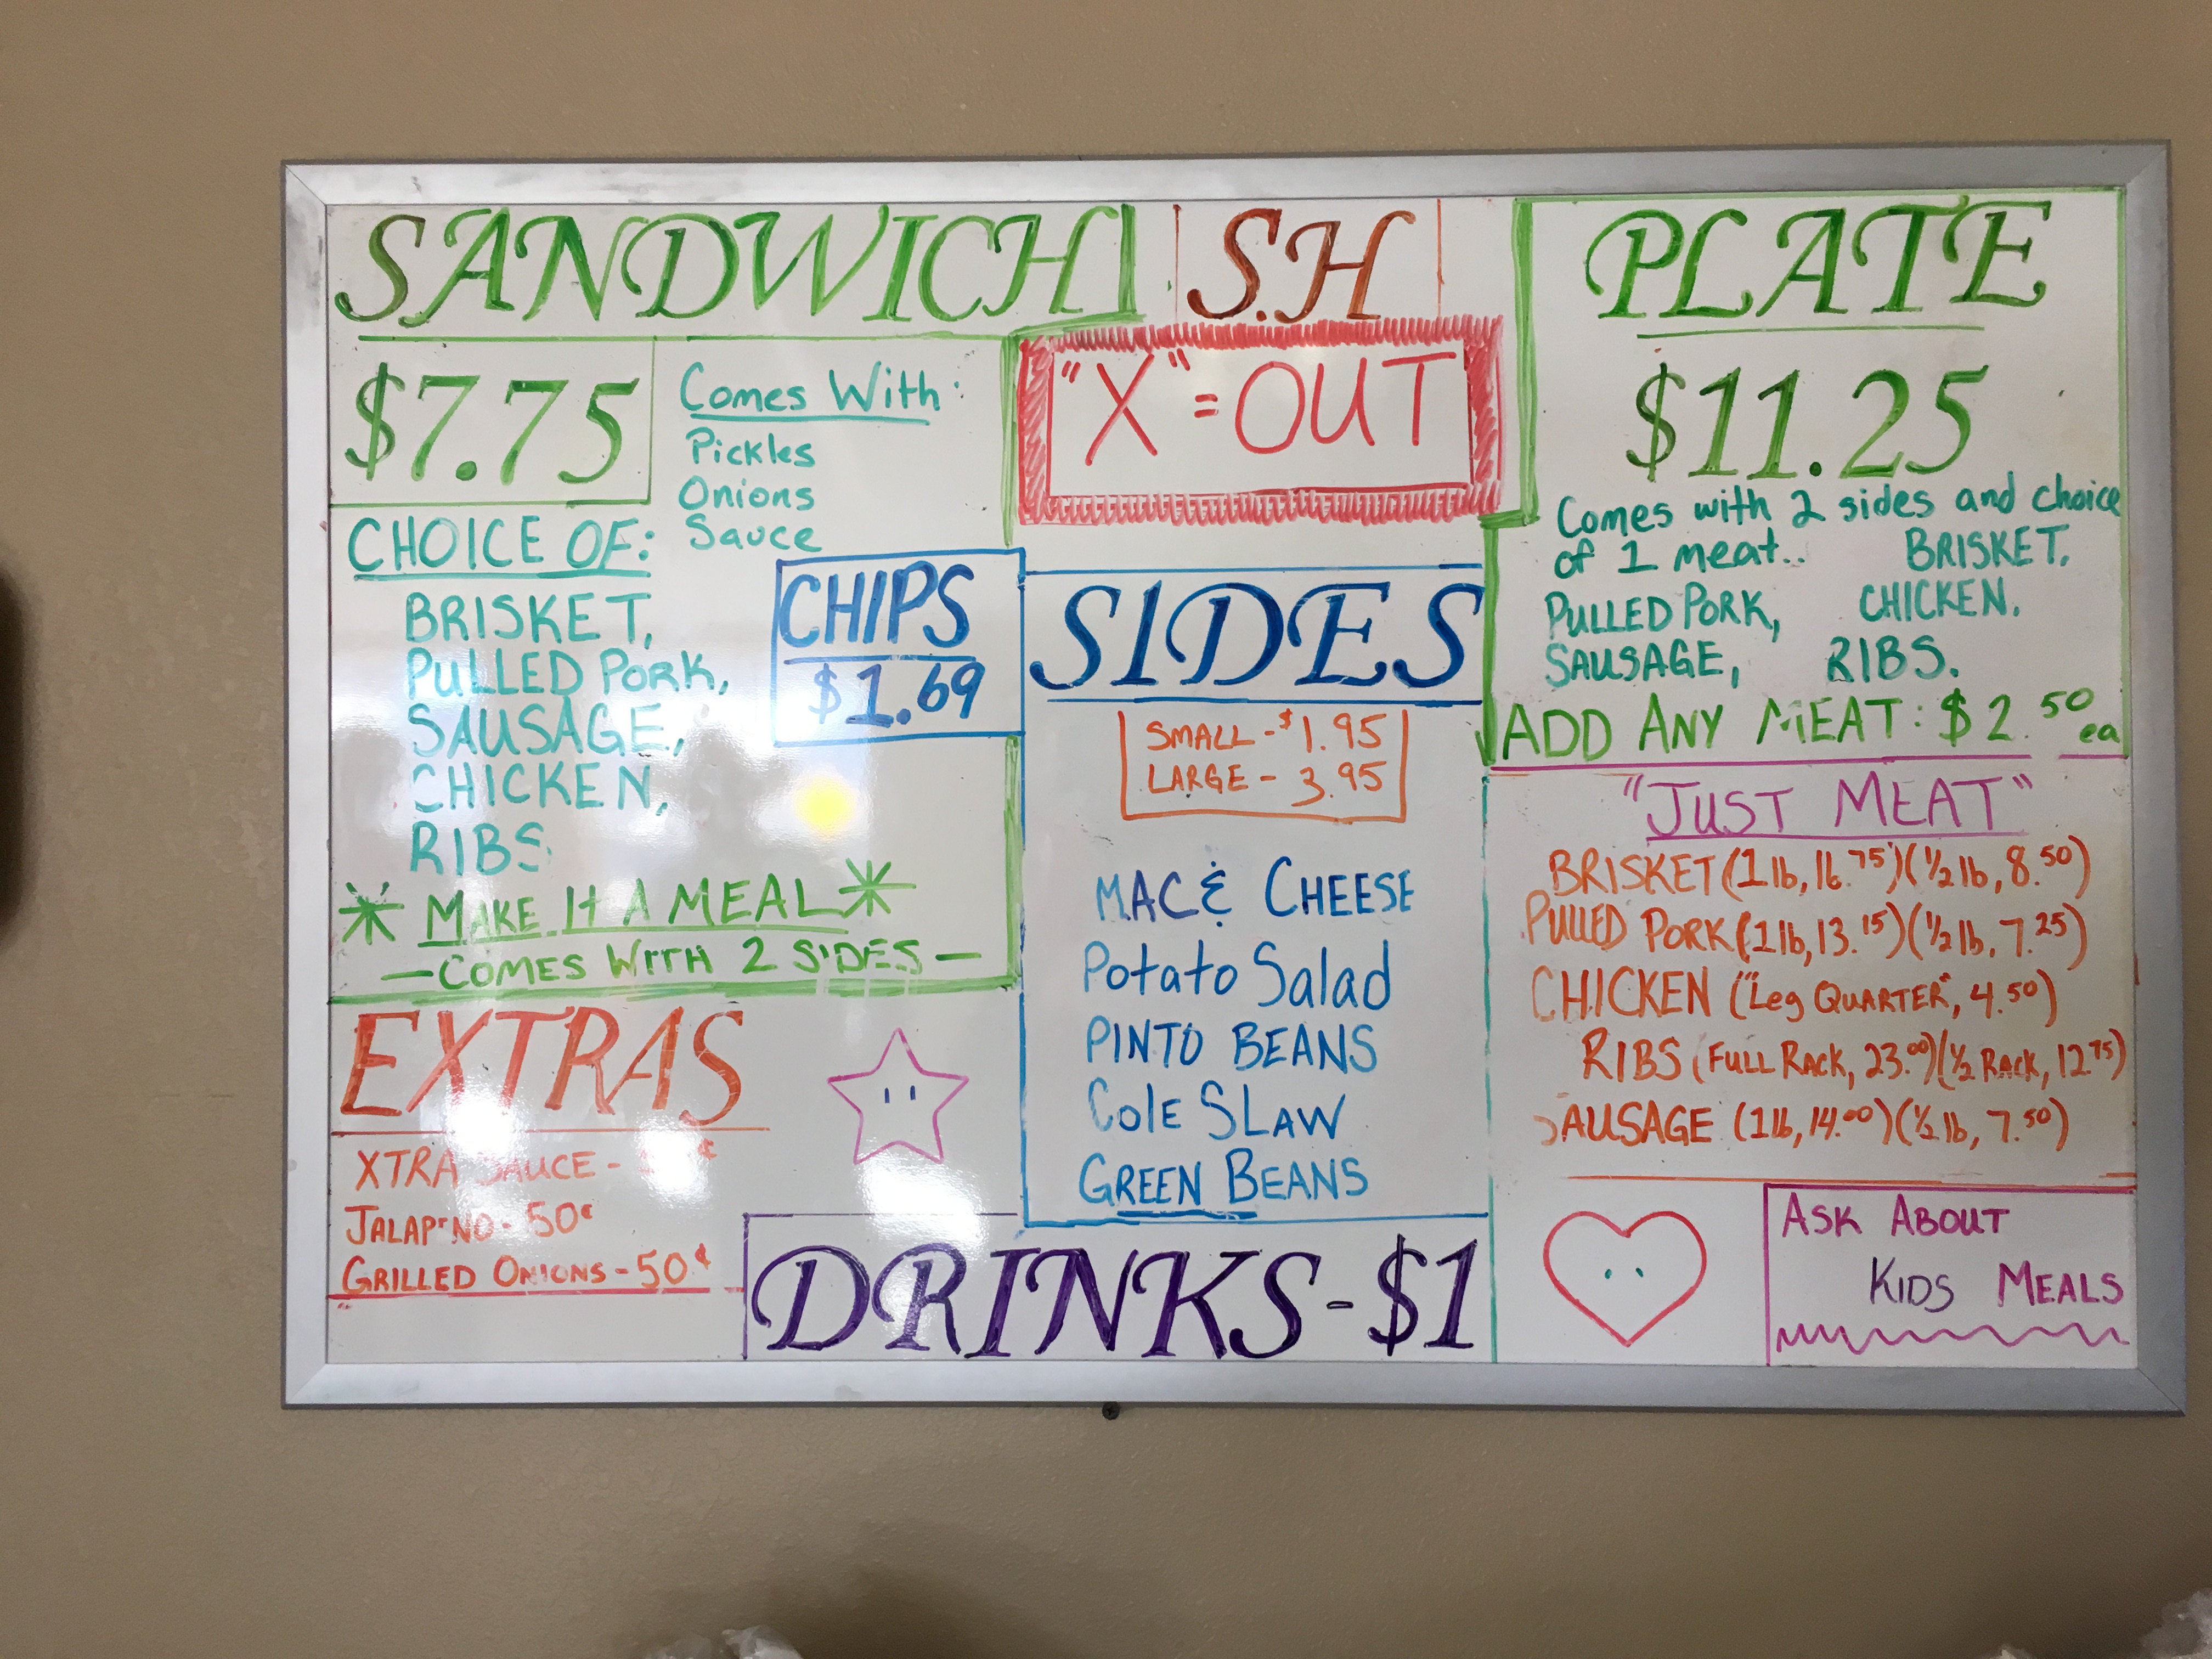 SANDWICH
$7.75
Comes With:
Pickles
Onions
Sauce
CHOICE OF:
BRISKET,
PULLED PORK,
SAUSAGE,
CHICKEN,
RIBS
CHIPS
$1.69
* MAKE It A MEAL *
- COMES WITH 2 SIDES -
EXTRAS
XTRA SAUCE -
JALAP NO - 50¢
GRILLED ONIONS - 50¢
S.H
"X" = OUT
SIDES
SMALL - $1.95
LARGE - 3.95
MAC & CHEESE
Potato Salad
PINTO BEANS
Cole SLAW
GREEN BEANS
DRINKS - $1
PLATE
$11.25
Comes with 2 sides and choice
of 1 meat.. BRISKET,
PULLED PORK, CHICKEN,
SAUSAGE, RIBS.
ADD ANY MEAT: $2.50 ea
"JUST MEAT"
BRISKET (1 lb, 16.75) (1/2 lb, 8.50)
PULLED PORK (1 lb, 13.15) (1/2 lb, 7.25)
CHICKEN ("Leg QUARTER", 4.50)
RIBS (FULL RACK, 23.00) (1/2 RACK, 12.75)
SAUSAGE (1 lb, 14.00) (1/2 lb, 7.50)
ASK ABOUT
KIDS MEALS